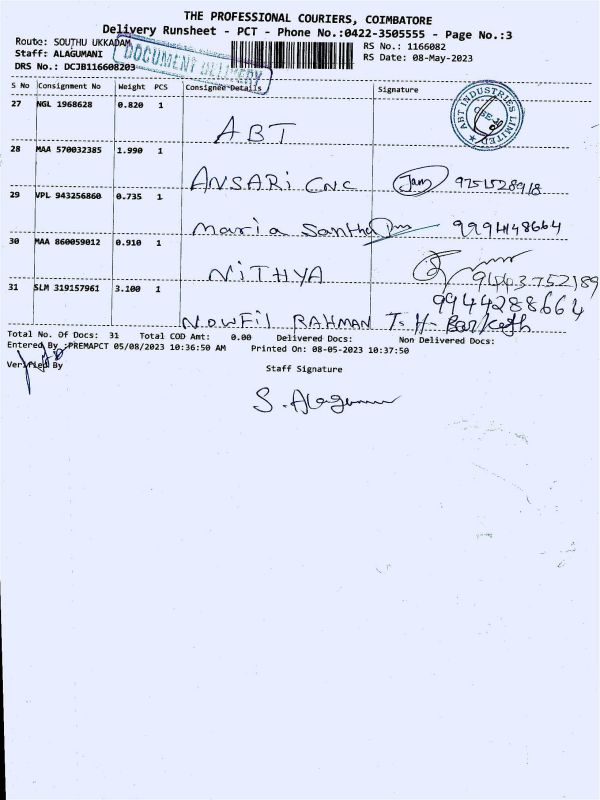 THE PROFESSIONAL COURIERS, COIMBATORE
Delivery Runsheet - PCT - Phone No.:0422-3505555 - Page No.:3
Route: SOUTHU UKKADAM
RS No.: 1166082
Staff: ALAGUMANI
RS Date: 08-May-2023
DRS No.: DCJB116608203
DOCUMENT DELIVERY
S No Consignment No Weight PCS Consignee Details Signature
27 NGL 1968628 0.820 1
ABT
ABT INDUSTRIES LIMITED
28 MAA 570032385 1.990 1
ANSARI CNC 9751528918
29 VPL 943256860 0.735 1
Maria Santha 9994148664
30 MAA 860059012 0.910 1
NITHYA 9443752189
31 SLM 319157961 3.100 1
9944288664
NOWFIL RAHMAN T. H-
Total No. Of Docs: 31 Total COD Amt: 0.00 Delivered Docs: Non Delivered Docs:
Entered By :PREMAPCT 05/08/2023 10:36:50 AM Printed On: 08-05-2023 10:37:50
Verified By
Staff Signature
S. Alagu